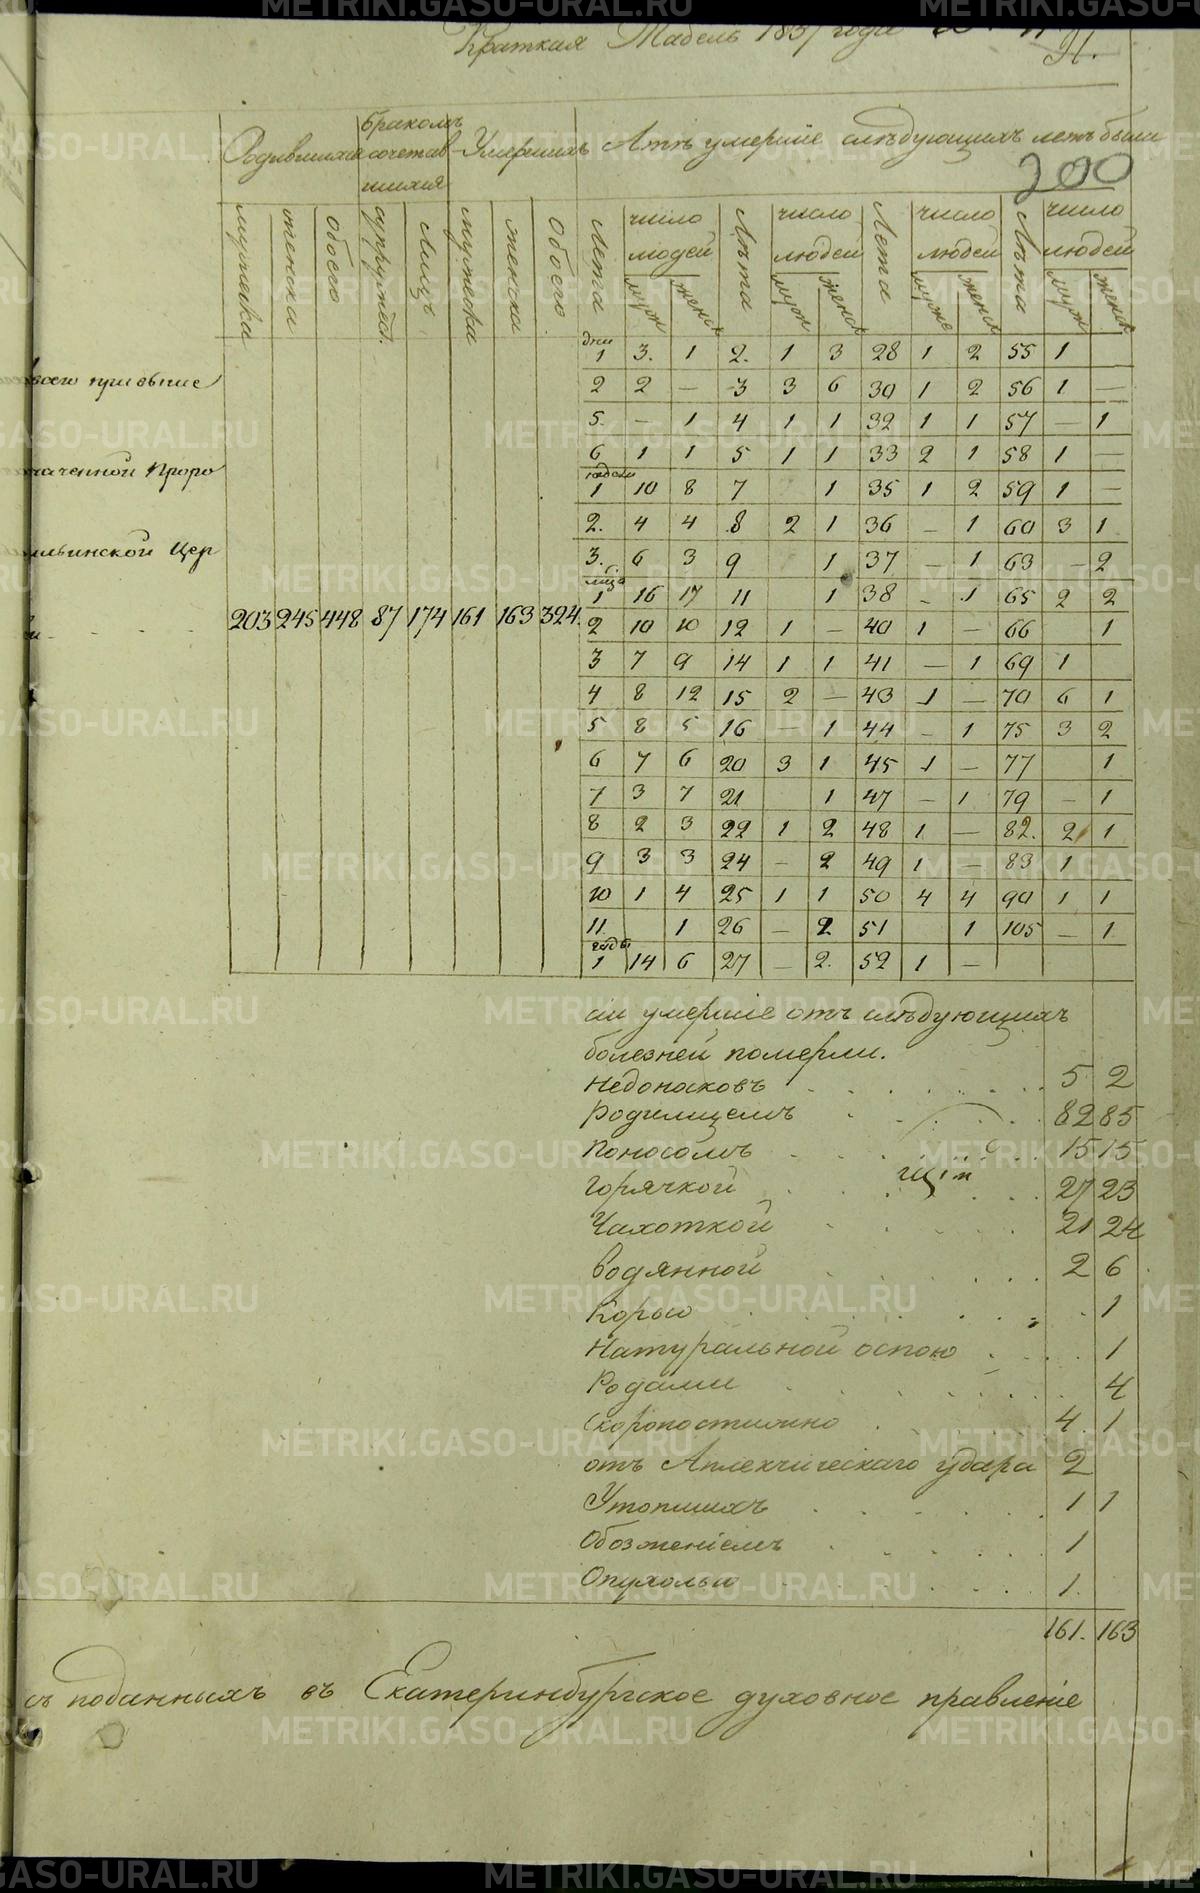 Краткая Табель 1837 года
91.
200
Родившихся
бракомъ сочетавшихся
Умершихъ
Лѣтъ умершiе слѣдующихъ летъ были
мужеска женска обоего супружес. лицъ мужеска женска обоего
Лета число людей Лѣта число людей Лета число людей Лѣта число людей
муж женск муж женск муж женск муж женск
дни
1 3. 1 2. 1 3 28 1 2 55 1
2 2 — 3 3 6 30 1 2 56 1 —
5. — 1 4 1 1 32 1 1 57 — 1
6 1 1 5 1 1 33 2 1 58 1 —
недели
1 10 8 7 1 35 1 2 59 1 —
2. 4 4 8 2 1 36 — 1 60 3 1
3. 6 3 9 1 37 — 1 63 — 2
м-ца
1 16 17 11 1 38 — 1 65 2 2
203 245 448 87 174 161 163 324.
2 10 10 12 1 — 40 1 — 66 1
3 7 9 14 1 1 41 — 1 69 1
4 8 12 15 2 — 43 1 — 70 6 1
5 8 5 16 — 1 44 — 1 75 3 2
6 7 6 20 3 1 45 1 — 77 1
7 3 7 21 1 47 — 1 79 — 1
8 2 3 22 1 2 48 1 — 82. 2 1
9 3 3 24 — 2 49 1 — 83 1
10 1 4 25 1 1 50 4 4 90 1 1
11. 1 26 — 2 51 1 105 — 1
годы
1 14 6 27 — 2. 52 1 —
сии умершiе отъ слѣдующихъ
болезней померли.
Недоносковъ 5 2
Родимцемъ 82 85
Поносомъ 15 15
Горячкой 27 23
Чахоткой 21 24
Водянной 2 6
Корью 1
Натуральной оспою 1
Родами 4
Скоропостижно 4. 1
отъ Аплекчическаго удара 2
Утопшихъ 1 1
Обозженiемъ 1
Опухолью 1.
161. 163
съ поданныхъ въ Екатеринбургское духовное правленiе
METRIKI.GASO-URAL.RU